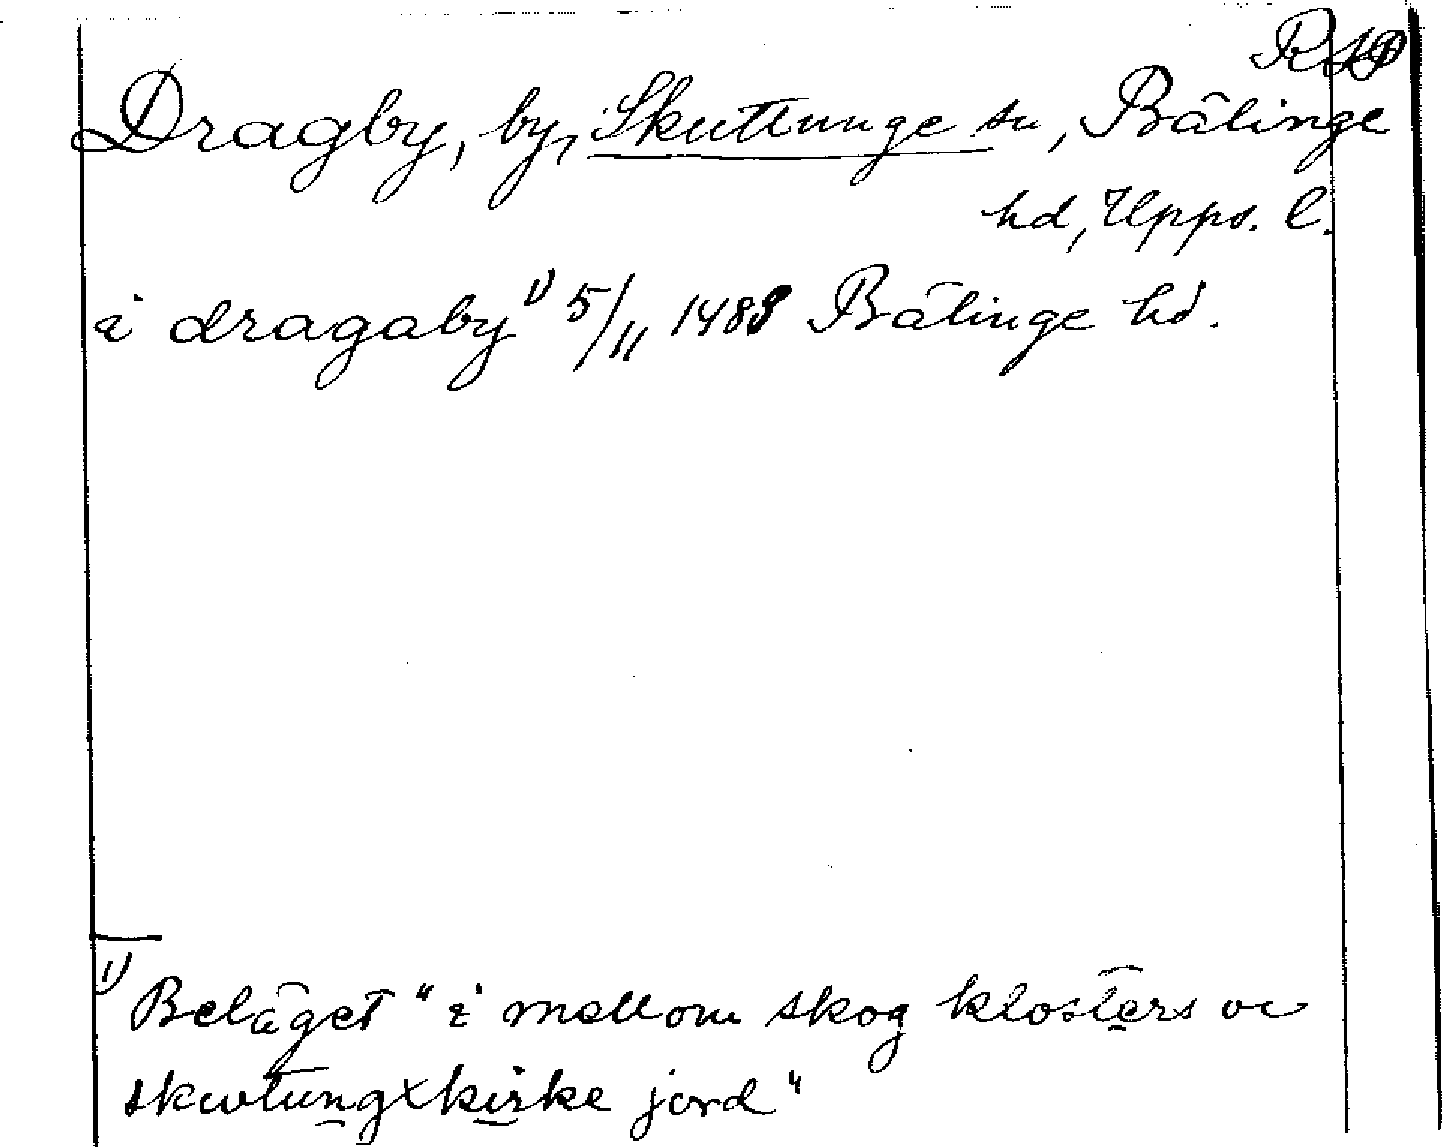 Dragby, by, Skuttunge sn, Bälinge
hd, Upps. l.
i dragaby 1) 5/11 1488 Bälinge hd.
1) Beläget "i mellom skog klosters oc
skwtungxkirke jord"